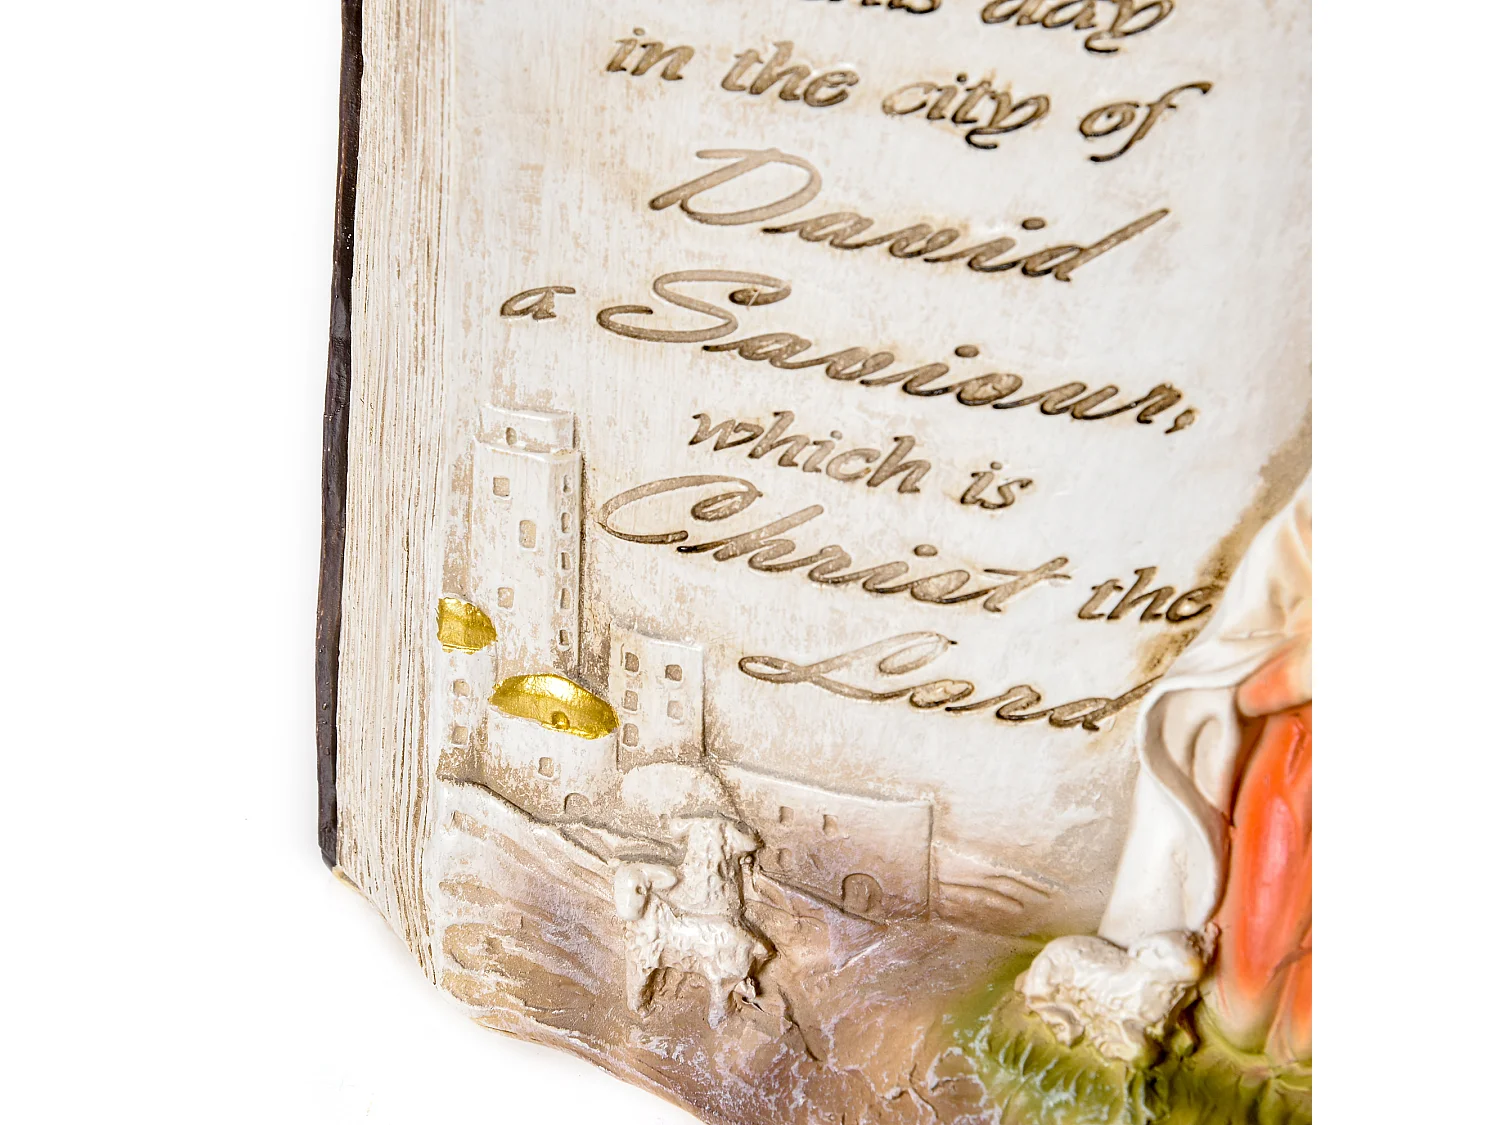 day
in the city of
David
a Saviour,
which is
Christ the
Lord